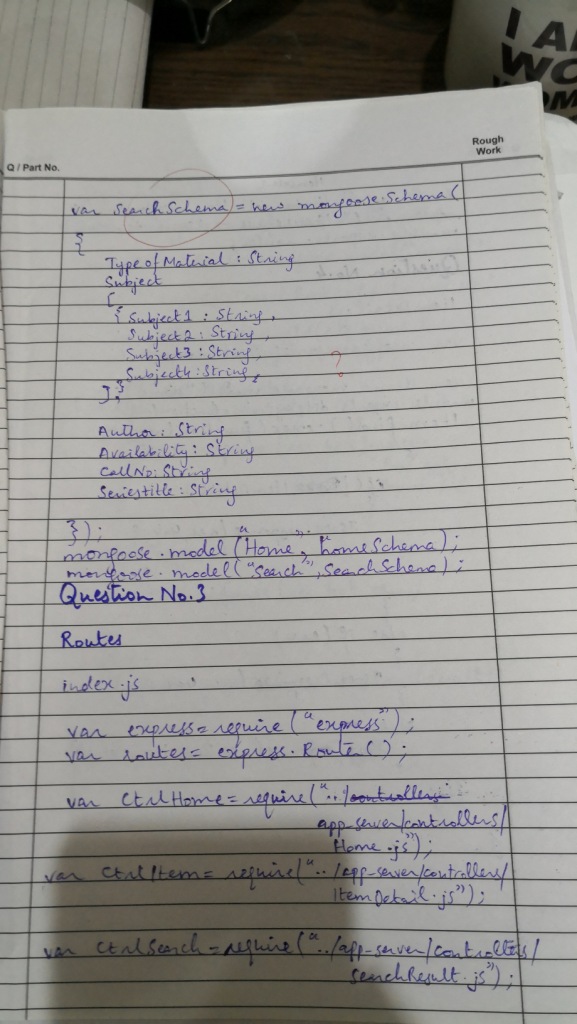 I A
WO
WOM
Rough
Work
Q / Part No.
var SearchSchema = new mongoose.Schema(
{
Type of Material : String
Subject
[
{ Subject1 : String,
Subject2 : String,
Subject3 : String,
Subject4 : String,
?
}
],
Author : String
Availability : String
CallNo: String
Seriestitle : String
});
mongoose.model("Home", homeSchema);
mongoose.model("Search", SearchSchema);
Question No.3
Routes
index.js
var express = require("express");
var routes = express.Route();
var CtrlHome = require("../controllers
app-server/controllers/
Home.js");
var CtrlItem = require("../app-server/controllers/
ItemDetail.js");
var CtrlSearch = require("../app-server/controllers/
searchResult.js");